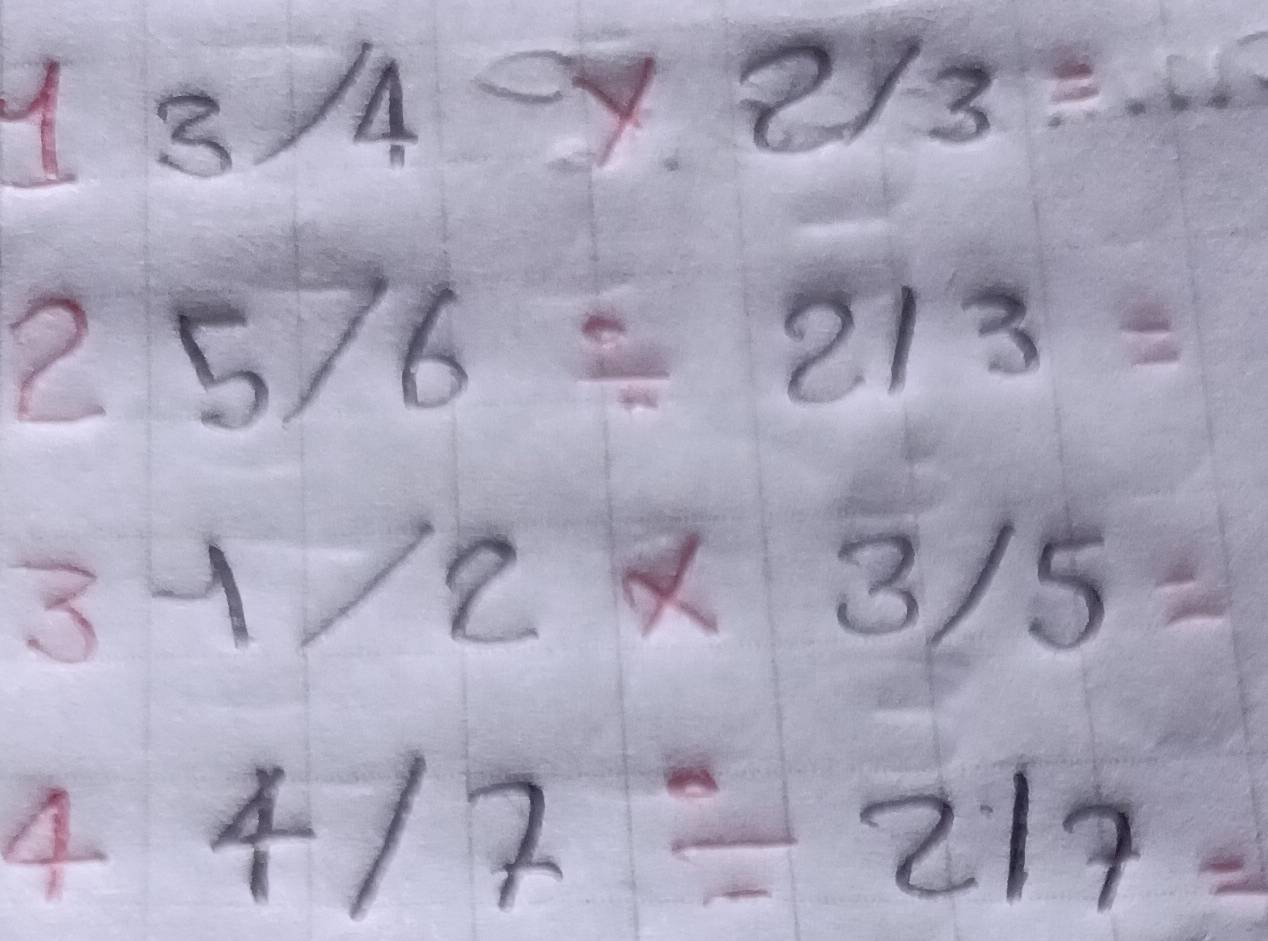 1 3/4 × 2/3 = .....
2 5/6 ÷ 2/3 =
3 1/2 × 3/5 =
4 4/7 ÷ 2/7 =